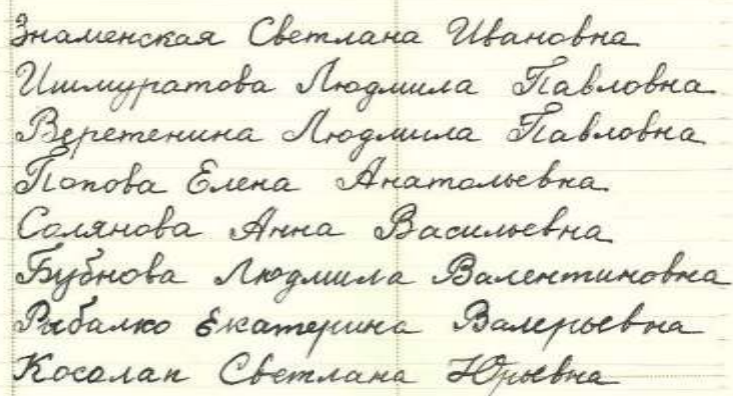 Знаменская Светлана Ивановна
Ишмуратова Людмила Павловна
Веретенина Людмила Павловна
Попова Елена Анатольевна
Солянова Анна Васильевна
Бубнова Людмила Валентиновна
Рыбалко Екатерина Валерьевна
Косолап Светлана Юрьевна